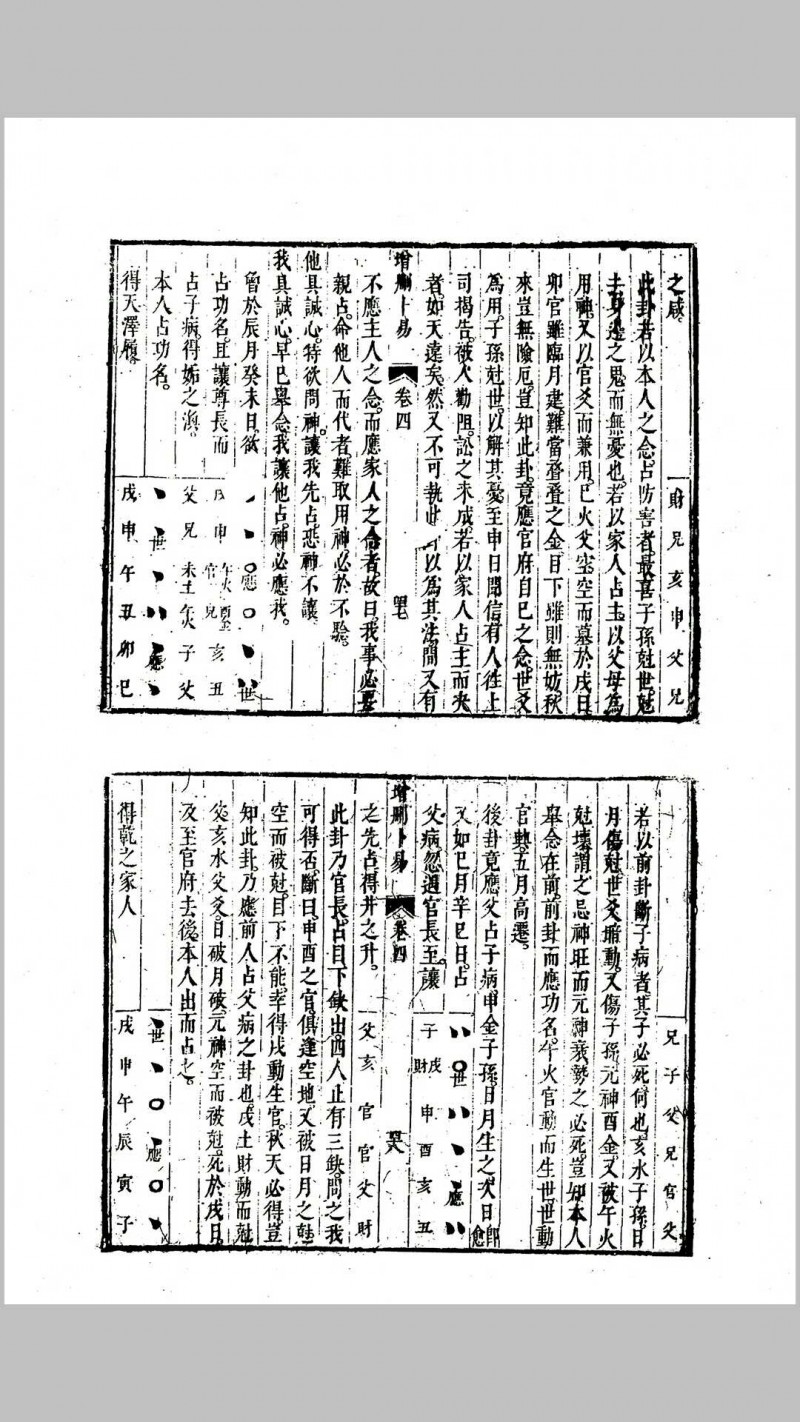 之咸
財兄亥申父兄
此卦若以本人之念占防害者最喜子孫尅世尅
去身邊之鬼而無憂也若以家人占主以父母為
用神又以官爻而兼用巳火父空空而墓於戌日
卯官雖臨月建難當疊疊之金目下雖則無妨秋
來豈無險厄豈知此卦竟應官府自巳之念世爻
為用子孫尅世以解其憂至申日聞信有人往上
司揭告被人勸阻訟之未成若以家人占主而夬
者如天遠矣然又不可執此以為其法間又有
增刪卜易
卷四
罕七
不應主人之念而應家人之念者故曰我事必要
親占命他人而代者難取用神必於不驗
他具誠心特欲問神讓我先占恐神不讓
我具誠心早巳舉念我讓他占神必應我
曾於辰月癸未日欲
占功名且讓尊長而
占子病得姤之渙
本人占功名
得天澤履
戌申午酉亥丑
父兄官兄子父
未土午火
世應
戌申午丑卯巳
世應
兄子父兄官父
若以前卦斷子病者其子必死何也亥水子孫日
月傷尅世爻暗動又傷子孫元神酉金又被午火
尅壞謂之忌神旺而元神衰勢之必死豈知本人
舉念在前前卦而應功名午火官動而生世世動
官興五月高遷
後卦竟應父占子病申金子孫日月生之次日即愈
又如巳月辛巳日占
父病忽遇官長至讓
之先占得井之升
世應
子戌申酉亥丑
父財官官父財
增刪卜易
卷四
罕八
此卦乃官長占目下缺出四人止有三缺問之我
可得否斷曰申酉之官俱逢空地又被日月之尅
空而被尅目下不能幸得戌動生官秋天必得豈
知此卦乃應前人占父病之卦也戌土財動而尅
父亥水父爻自破月破元神空而被尅死於戌日
及至官府去後本人出而占之
得乾之家人
世應
戌申午辰寅子